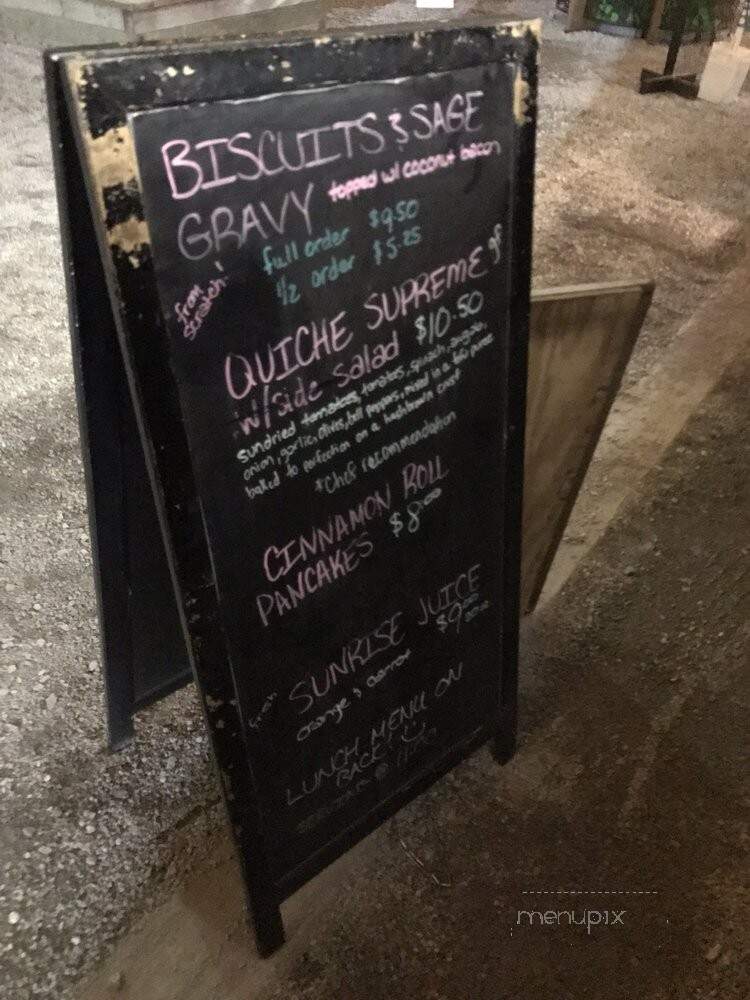 BISCUITS & SAGE
GRAVY topped w/ coconut bacon
full order $9.50
1/2 order $5.25
from scratch!
QUICHE SUPREME gf
w/ side salad $10.50
sundried tomatoes, tomatoes, spinach, arugula,
onion, garlic, olives, bell peppers, mixed in a tofu puree
baked to perfection on a hashbrown crust
*Chef recommendation
CINNAMON ROLL
PANCAKES $8.00
SUNRISE JUICE
orange & carrot $9.00
LUNCH MENU ON
BACK!
menupix